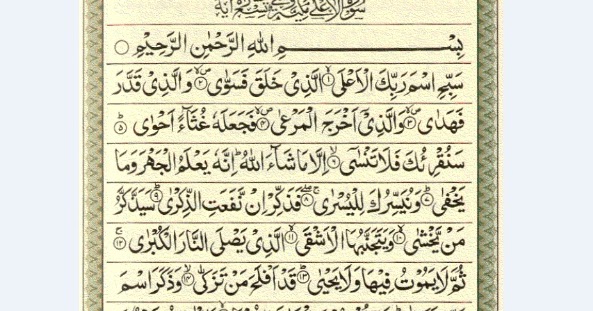 سورة الاعلى مكية وهى تسع عشرة اية
بِسْمِ اللهِ الرَّحْمٰنِ الرَّحِيْمِ ○
سَبِّحِ اسْمَ رَبِّكَ الْاَعْلَى ۙ﴿۱﴾ الَّذِىْ خَلَقَ فَسَوّٰى ۪ۙ﴿۲﴾ وَالَّذِىْ قَدَّرَ
فَهَدٰى ۪ۙ﴿۳﴾ وَالَّذِىْۤ اَخْرَجَ الْمَرْعٰى ۪ۙ﴿۴﴾ فَجَعَلَهٗ غُثَآءً اَحْوٰى ؕ﴿۵﴾
سَنُقْرِئُكَ فَلَا تَنْسٰٓى ۙ﴿۶﴾ اِلَّا مَا شَآءَ اللهُ ؕ اِنَّهٗ يَعْلَمُ الْجَهْرَ وَمَا
يَخْفٰى ؕ﴿۷﴾ وَنُيَسِّرُكَ لِلْيُسْرٰى ۚۖ﴿۸﴾ فَذَكِّرْ اِنْ نَّفَعَتِ الذِّكْرٰى ؕ﴿۹﴾ سَيَذَّكَّرُ
مَنْ يَّخْشٰى ۙ﴿۱۰﴾ وَيَتَجَنَّبُهَا الْاَشْقَى ۙ﴿۱۱﴾ الَّذِىْ يَصْلَى النَّارَ الْكُبْرٰى ۚ﴿۱۲﴾
ثُمَّ لَا يَمُوْتُ فِيْهَا وَلَا يَحْيٰى ؕ﴿۱۳﴾ قَدْ اَفْلَحَ مَنْ تَزَكّٰى ۙ﴿۱۴﴾ وَذَكَرَ اسْمَ